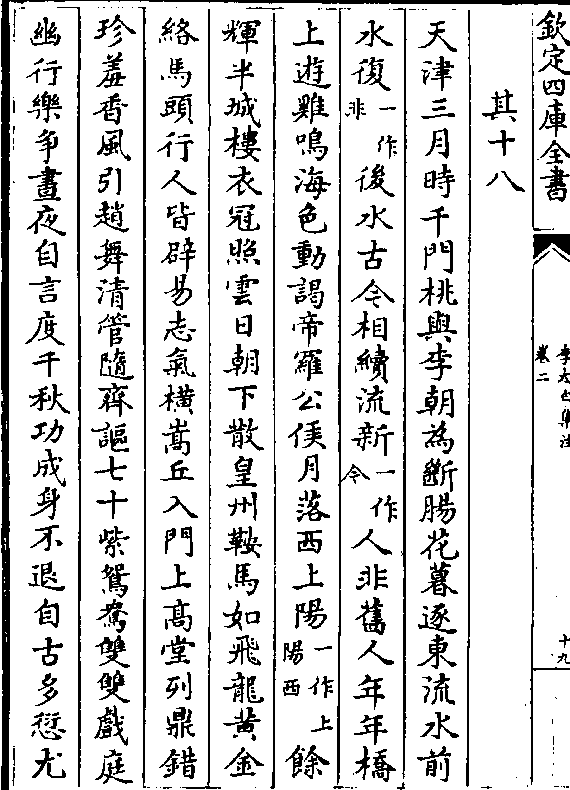 欽定四庫全書
李太白集注
卷二
十九
其十八
天津三月時千門桃與李朝為斷腸花暮逐東流水前
水復一作非後水古今相續流新一作今人非舊人年年橋
上遊雞鳴海色動謁帝羅公侯月落西上陽一作上陽西餘
輝半城樓衣冠照雲日朝下散皇州鞍馬如飛龍黄金
絡馬頭行人皆辟易志氣橫嵩丘入門上髙堂列鼎錯
珍羞香風引趙舞清管隨齊謳七十紫鴛鴦雙雙戲庭
幽行樂争晝夜自言度千秋功成身不退自古多愆尤